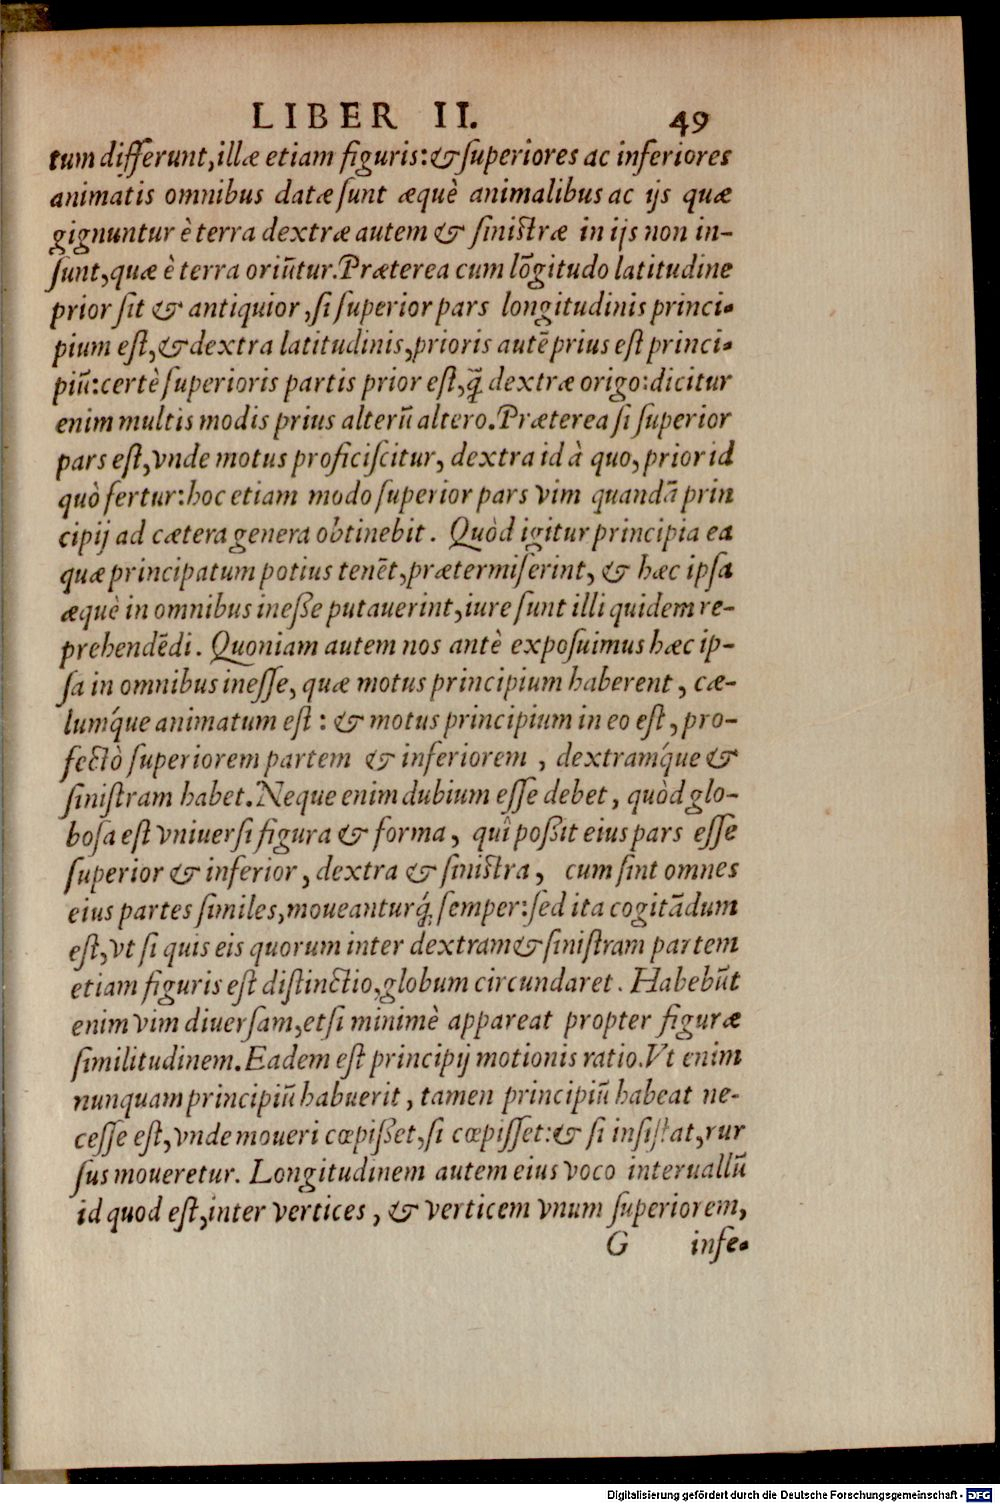 LIBER II. 49
tum differunt, illæ etiam figuris: & ſuperiores ac inferiores
animatis omnibus datæ ſunt æquè animalibus ac ijs quæ
gignuntur è terra dextræ autem & ſiniſtræ in ijs non in-
ſunt, quæ è terra oriũtur. Præterea cum lõgitudo latitudine
prior ſit & antiquior, ſi ſuperior pars longitudinis princi-
pium eſt, & dextra latitudinis, prioris autẽ prius eſt princi-
piũ: certè ſuperioris partis prior eſt, q̃ dextræ origo: dicitur
enim multis modis prius alterũ altero. Præterea ſi ſuperior
pars eſt, vnde motus proficiſcitur, dextra id à quo, prior id
quò fertur: hoc etiam modo ſuperior pars vim quandã prin
cipij ad cætera genera obtinebit. Quòd igitur principia ea
quæ principatum potius tenẽt, prætermiſerint, & hæc ipſa
æquè in omnibus ineße putauerint, iure ſunt illi quidem re-
prehendẽdi. Quoniam autem nos antè expoſuimus hæc ip-
ſa in omnibus ineſſe, quæ motus principium haberent, cæ-
lumq́ue animatum eſt: & motus principium in eo eſt, pro-
fectò ſuperiorem partem & inferiorem, dextramq́ue &
ſiniſtram habet. Neque enim dubium eſſe debet, quòd glo-
boſa eſt vniuerſi figura & forma, quî poßit eius pars eſſe
ſuperior & inferior, dextra & ſiniſtra, cum ſint omnes
eius partes ſimiles, moueanturq́; ſemper: ſed ita cogitãdum
eſt, vt ſi quis eis quorum inter dextram & ſiniſtram partem
etiam figuris eſt diſtinctio, globum circundaret. Habebũt
enim vim diuerſam, etſi minimè appareat propter figuræ
ſimilitudinem. Eadem eſt principij motionis ratio. Vt enim
nunquam principiũ habuerit, tamen principiũ habeat ne-
ceſſe eſt, vnde moueri cœpißet, ſi cœpiſſet: & ſi inſiſtat, rur
ſus moueretur. Longitudinem autem eius voco interuallũ
id quod eſt, inter vertices, & verticem vnum ſuperiorem,
G infe-
Digitalisierung gefördert durch die Deutsche Forschungsgemeinschaft - DFG